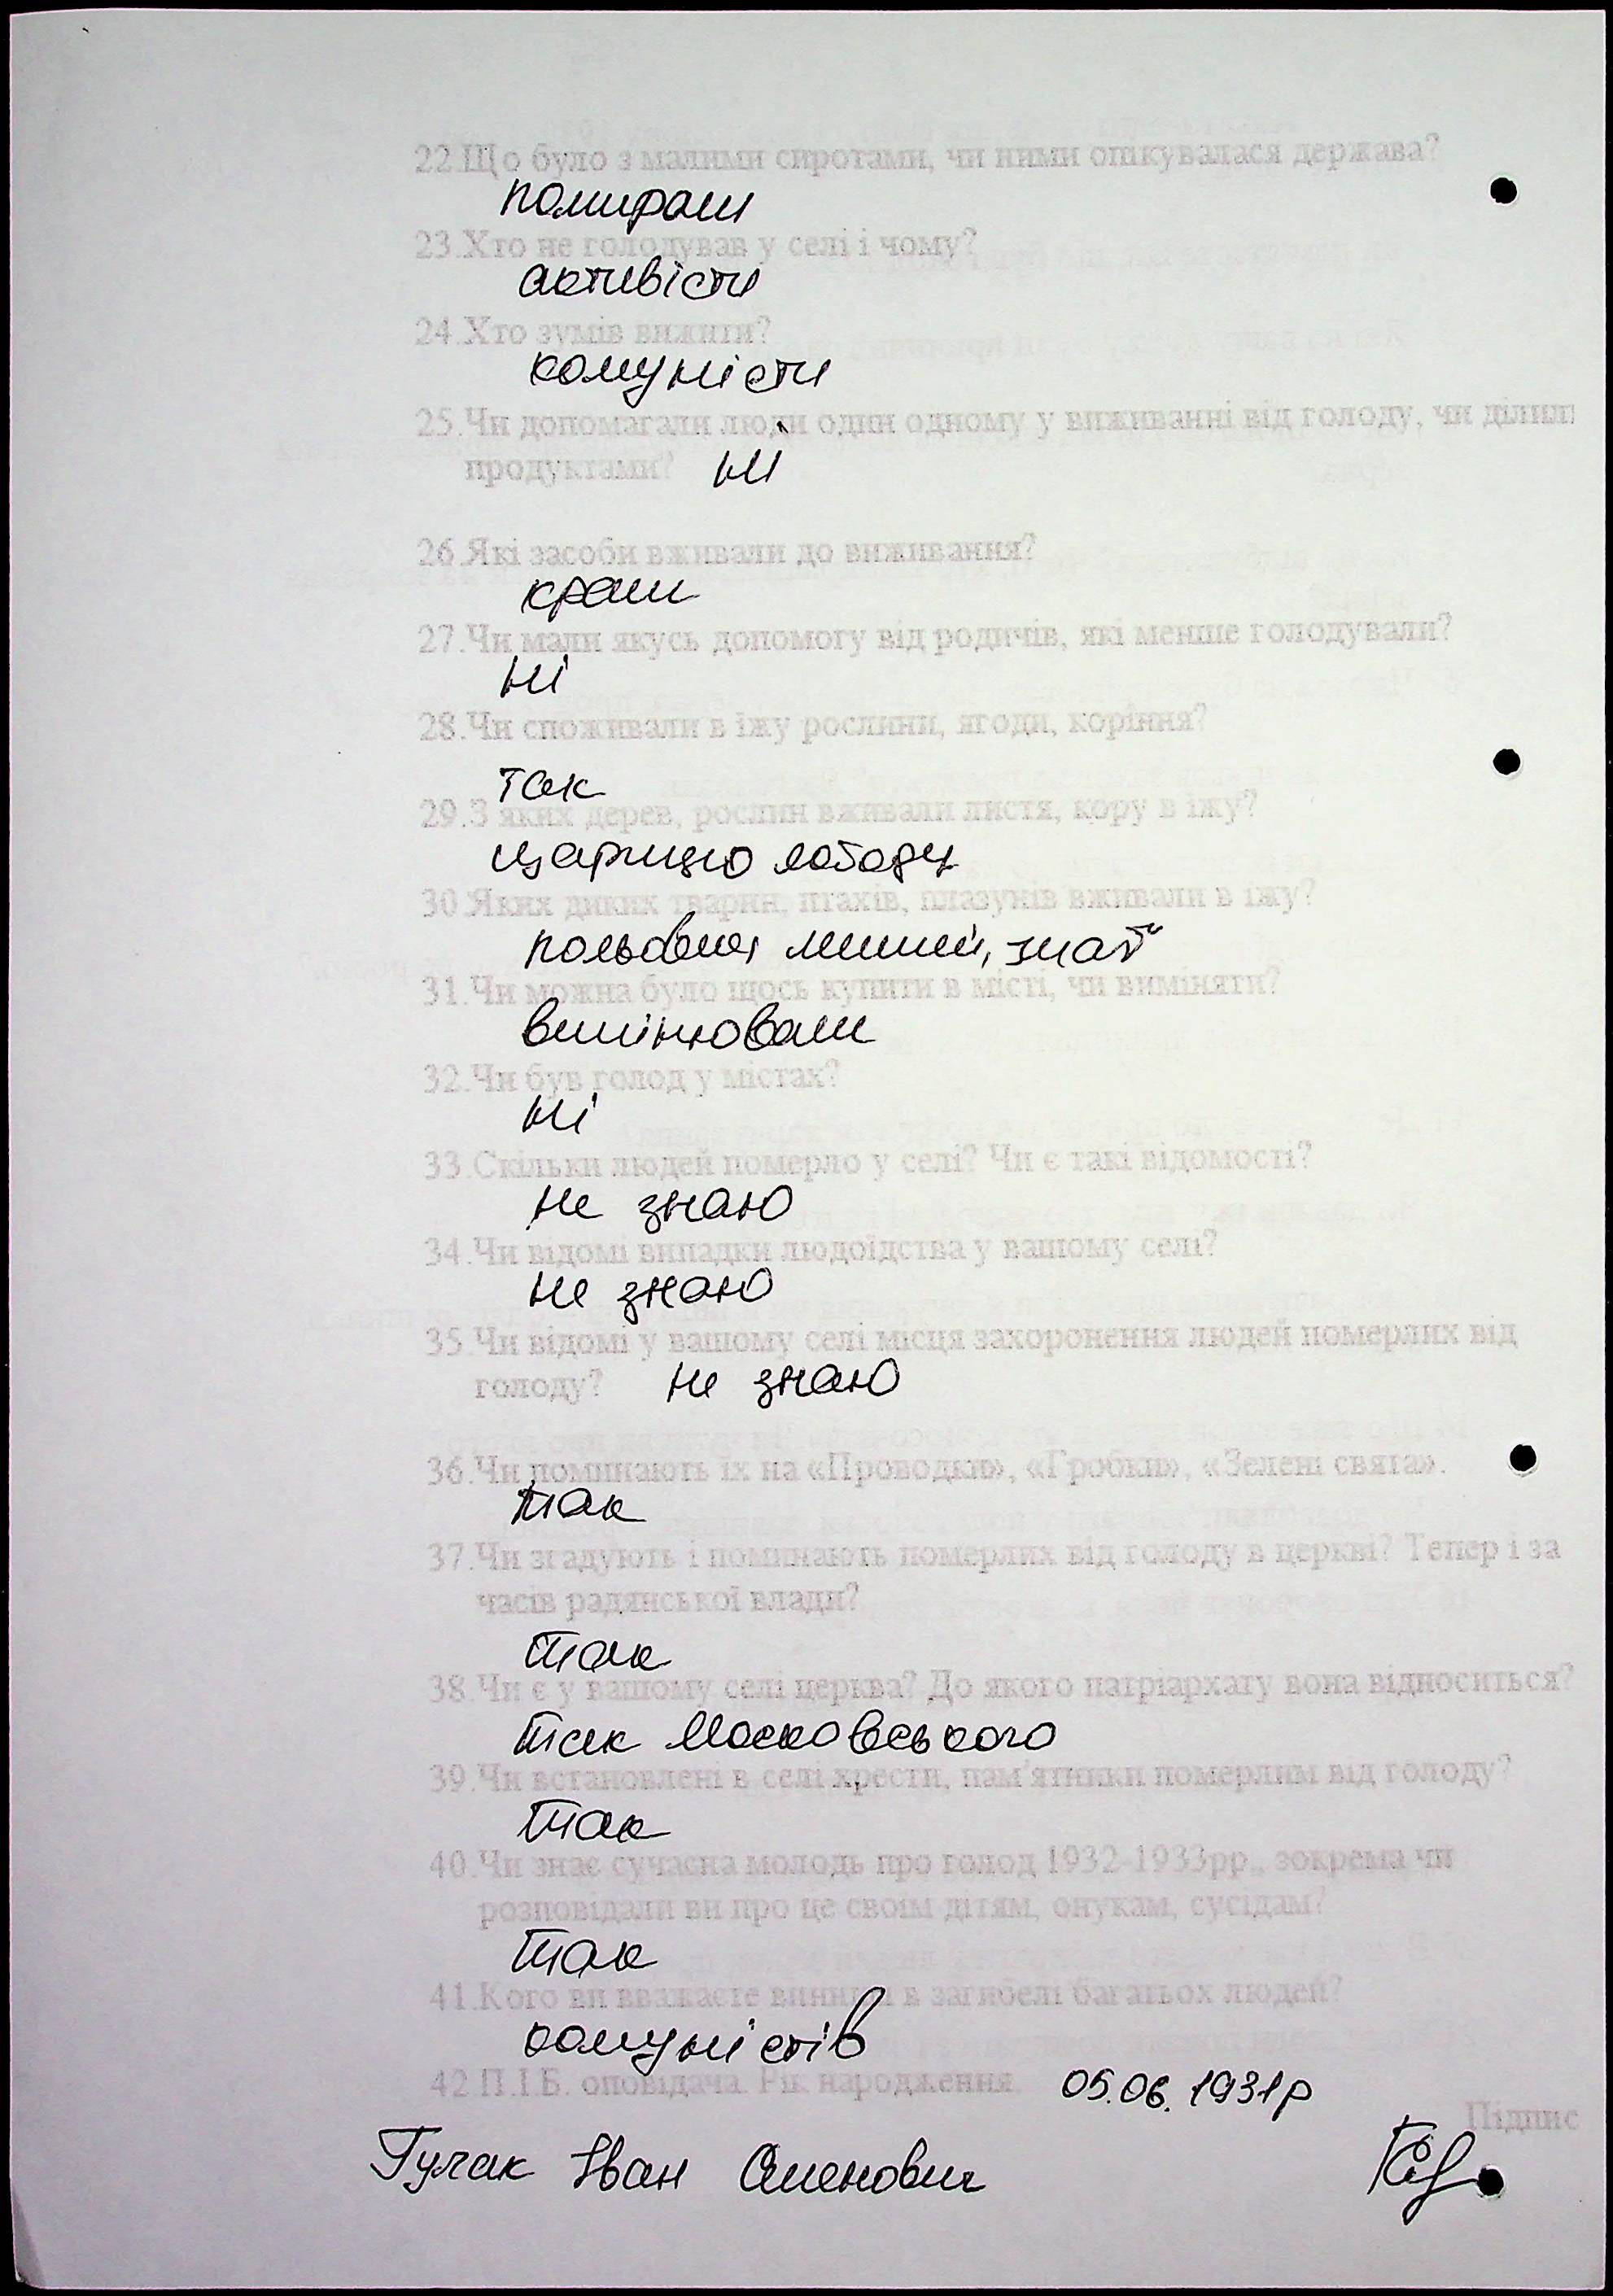 22.Що було з малими сиротами, чи ними опікувалася держава?
помирали
23.Хто не голодував у селі і чому?
активісти
24.Хто зумів вижити?
комуністи
25.Чи допомагали люди один одному у виживанні від голоду, чи ділили
продуктами? ні
26.Які засоби вживали до виживання?
крали
27.Чи мали якусь допомогу від родичів, які менше голодували?
ні
28.Чи споживали в їжу рослини, ягоди, коріння?
так
29.З яких дерев, рослин вживали листя, кору в їжу?
щирицю лободу
30.Яких диких тварин, птахів, плазунів вживали в їжу?
мишей,
31.Чи можна було щось купити в місті, чи виміняти?
вимінювали
32.Чи був голод у містах?
ні
33.Скільки людей померло у селі? Чи є такі відомості?
не знаю
34.Чи відомі випадки людоїдства у вашому селі?
не знаю
35.Чи відомі у вашому селі місця захоронення людей померлих від
голоду? не знаю
36.Чи поминають їх на «Проводки», «Гробки», «Зелені свята».
так
37.Чи згадують і поминають померлих від голоду в церкві? Тепер і за
часів радянської влади?
так
38.Чи є у вашому селі церква? До якого патріархату вона відноситься?
так Московського
39.Чи встановлені в селі хрести, пам'ятники померлим від голоду?
так
40.Чи знає сучасна молодь про голод 1932-1933рр., зокрема чи
розповідали ви про це своїм дітям, онукам, сусідам?
так
41.Кого ви вважаєте винним в загибелі багатьох людей?
комуністів
42.П.І.Б. оповідача. Рік народження. 05.06.1931р
Підпис
Гулак Іван Семенович